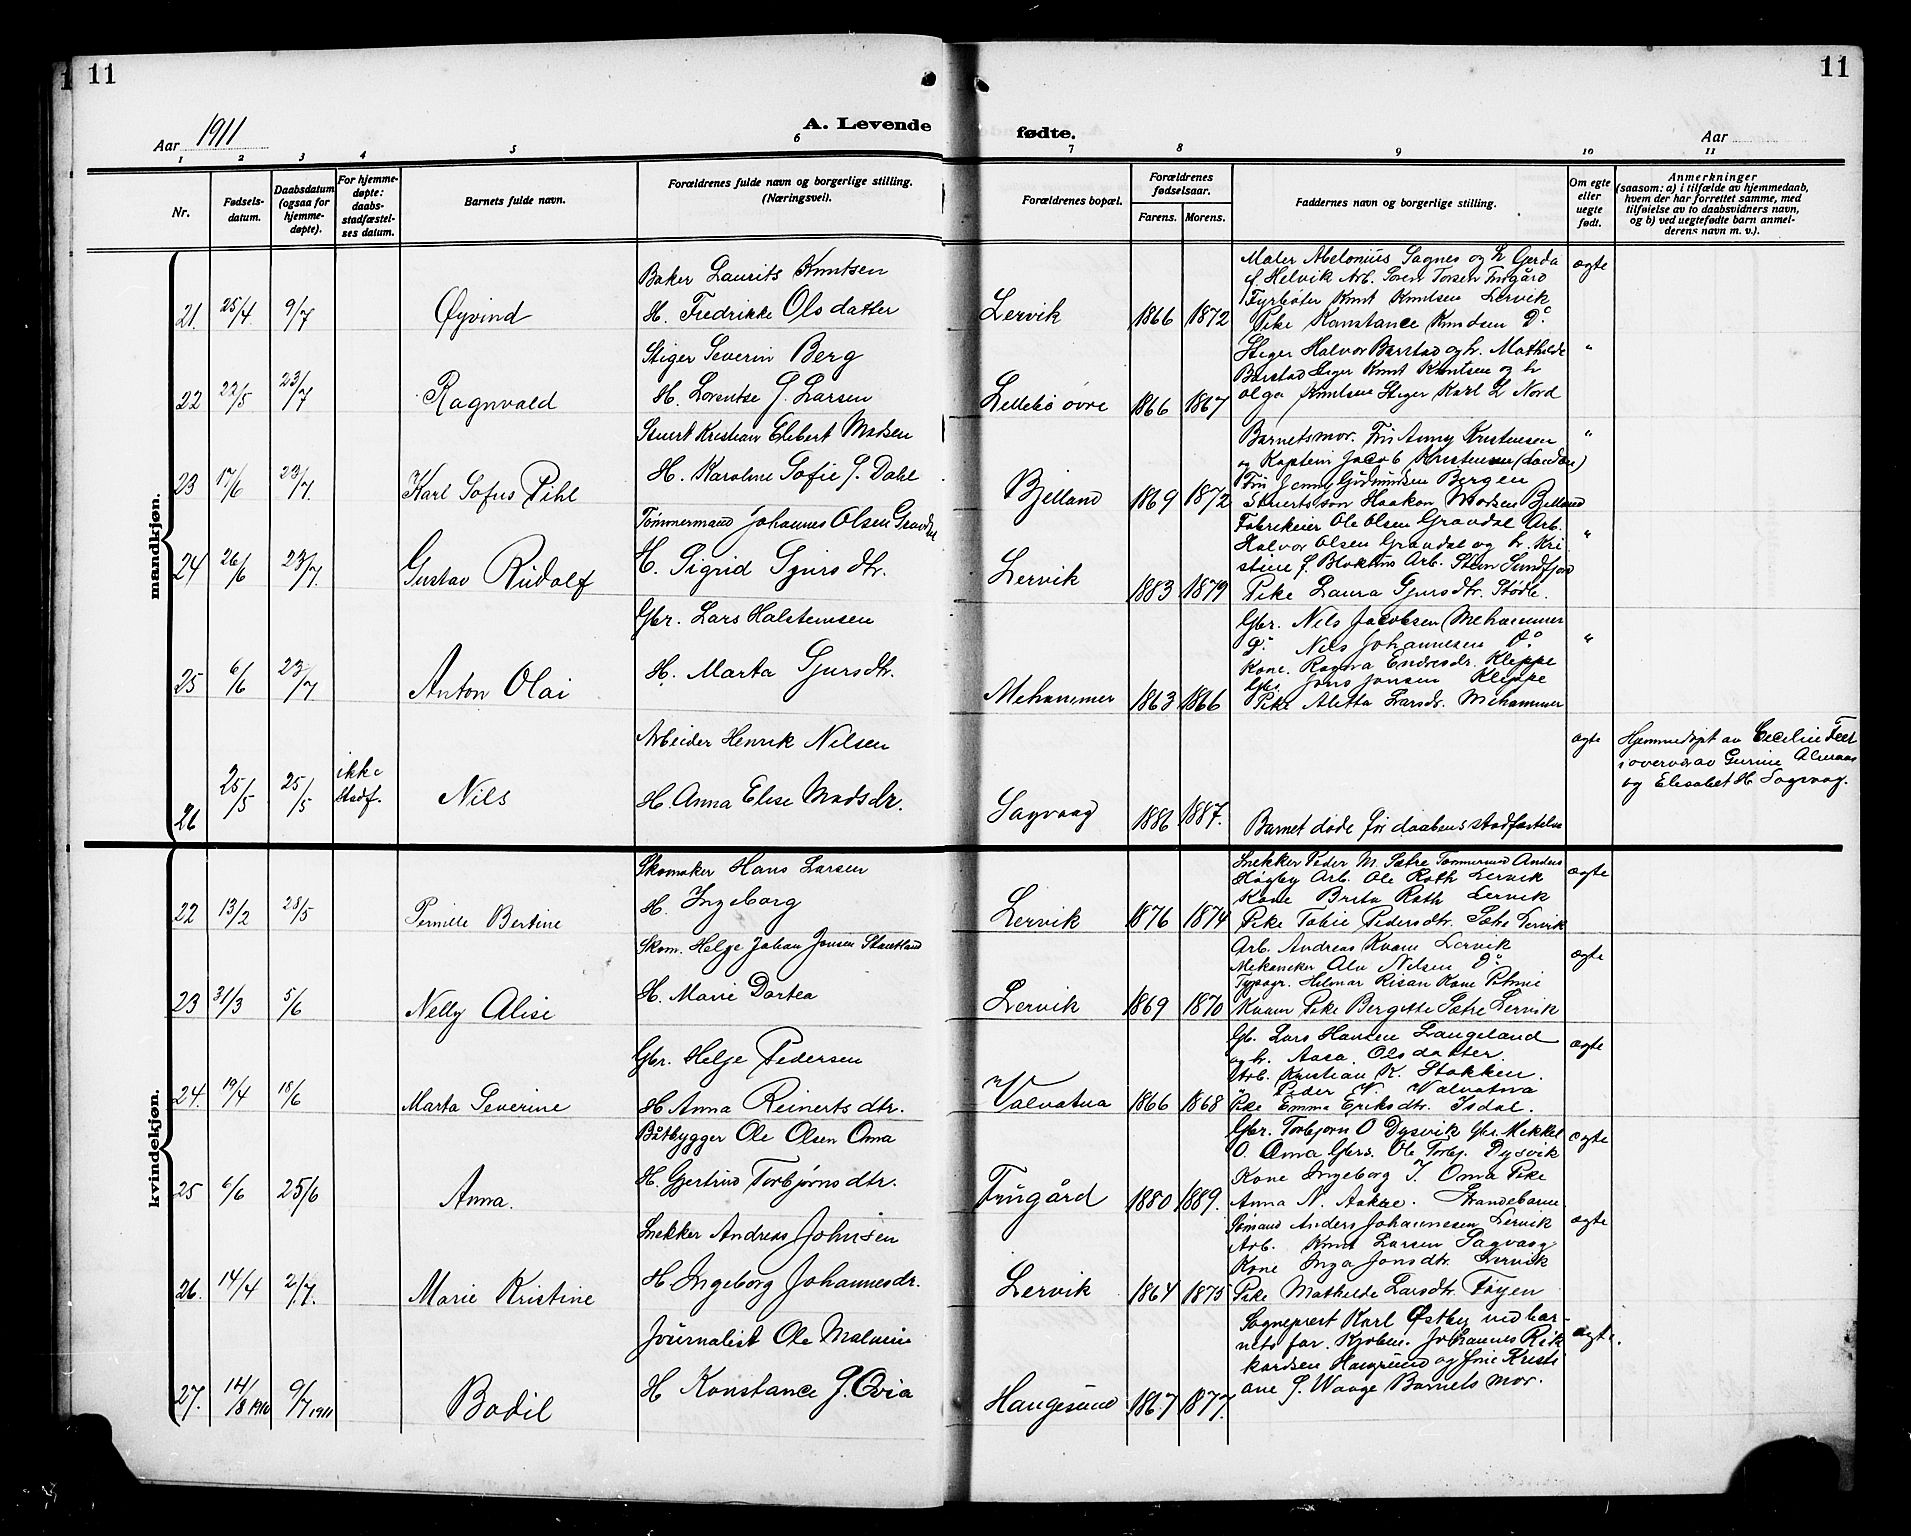 11
11
Aar 1911
A. Levende
fødte.
Aar
1 2 3 4 5 6 7 8 9 10 11
Nr.
Fødsels-
datum.
Daabsdatum
(ogsaa for
hjemme-
døpte).
For hjemme-
døpte:
daabs-
stadfæstel-
ses datum.
Barnets fulde navn.
Forældrenes fulde navn og borgerlige stilling.
(Næringsvei).
Forældrenes bopæl.
Forældrenes
fødselsaar.
Farens. Morens.
Faddernes navn og borgerlige stilling.
Om egte
eller
uegte
født.
Anmerkninger
(saasom: a) i tilfælde av hjemmedaab,
hvem der har forrettet samme, med
tilføielse av to daabsvidners navn,
og b) ved uegtefødte barn anmel-
derens navn m. v.).
mandkjøn.
21. 25/4 9/7 Øyvind
Baker Laurits Knutsen
H. Fredrikke Olsdatter
Lervik 1866 1872
Maler Abelonius Sagnes og h. Gerda
f. Helvik Arb. Soren Torsen Frugård
Fyrbøter Knut Knutsen Lervik
Pike Konstance Knudsen Do
ægte
22 22/5 23/7 Ragnvald
Stiger Severin Berg
H. Lorentse f. Larsen
Lillebø øvre 1866 1867
Stiger Halvor Barstad og h. Mathilde
Barstad Stiger Knut Knutsen og h
Olga Knutsen Stiger Karl L Nord
"
23 17/6 23/7. Karl Sofus Pihl
Stuert Kristian Elebert Madsen
H. Karoline Sofie f. Dahl
Bjelland 1869 1872
Barnets mor. Fru Anny Kristensen
og Kaptein Jacob Kristensen (London)
Fru Jenny Gudmundsen Bergen
Stuertssøn Haakon Madsen Bjelland
"
24 26/6 23/7. Gustav Rudolf
Tømmermand Johannes Olsen Gravdal
H. Sigrid Sjursdtr.
Lervik 1883 1879
Fabrikeier Ole Olsen Gravdal Arb.
Halvor Olsen Gravdal og h. Kri
stine f. Arb. Sten Sundfjord
Pike Laura Sjursdtr. Stødle.
"
25 6/6 23/7 Anton Olai
Gbr. Lars Halstensen
H. Marta Sjursdtr.
Mehammer 1863 1866
Gbr. Nils Jacobsen Mehammer
Do Nils Johannesen Do
Kone. Ragna Endresdr. Kleppe
Gbs. Jons Jonsen Kleppe
Pike Aletta Larsdr. Mehammer
"
26 25/5 25/5 ikke
stadf. Nils
Arbeider Henrik Nilsen
H. Anna Elise Madsdr.
Sagvaag 1886 1887.
Barnet døde før daabens stadfæstelse
ægte
Hjemmedøpt av Cecilie Feet
i overvær av Gurine Almaas
og Elisabet H. Sagvaag.
kvindekjøn.
22 13/2 28/5 Pernille Bertine
Skomaker Hans Larsen
H. Ingeborg
Lervik 1876 1874
Snekker Peder M. Sætre Tømmermd Anders
Høgby Arb. Ole Roth Lervik
Kone Brita Roth Lervik
Pike Tobie Pedersdtr. Sætre Lervik
ægte
23 31/3 5/6 Nelly Alise
Skom. Helge Johan Jonsen Stautland
H. Marie Dortea
Lervik 1869 1870
Arb. Andreas Kvam Lervik
Mekaniker Alv Nilsen Do
Typogr. Hilmar Risan Kone
Kvam Pike Bergitte Sætre Lervik
ægte
24. 19/4 18/6 Marta Severine
Gbr. Helge Pedersen
H. Anna Reinertsdtr.
Valvatna 1866 1868
Gb. Lars Hansen Langeland
og h. Aasa Olsdatter.
Arb. Kristian K. Stokken.
" Peder N. Valvatna
Pike Emma Eriksdtr. Isdal.
ægte
25 6/6 25/6 Anna.
Båtbygger Ole Olsen Oma
H. Gjertrud Torbjørnsdtr.
Frugård 1880 1889.
Gbr. Torbjorn O Dysvik Gbr. Mikkel
O. Oma Gbrs. Ole Torbj. Dysvik
Kone Ingeborg I. Oma Pike
Anna N. Aakre. Strandebarm
ægte
26. 14/4 2/7. Marie Kristine
Snekker Andreas Johnsen
H Ingeborg Johannesdr.
Lervik 1864 1875
Sømand Anders Johannesen Lervik
Arb. Knut Larsen Sagvaag
Kone Inga Jonsdtr. Lervik
Pike Mathilde Larsdtr. Føyen
ægte
27. 14/8 1910 9/7 1911 Bodil
Journalist Ole Malmin
H Konstance f. Qvia
Haugesund 1867 1877.
Sogneprest Karl Østby ved bar-
nets far. Kjøbm. Johannes Rik
kardsen Haugesund og frue Kristi
ane f. Waage Barnets mor.
ægte.